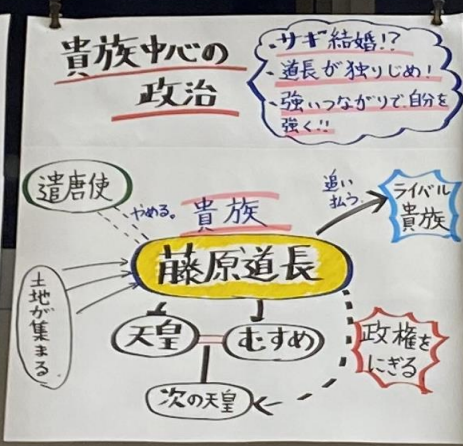 貴族中心の
政治
・サギ結婚!?
・道長が独りじめ!
・強いつながりで自分を
強く!!
遣唐使
やめる。
貴族
追い
払う。
ライバル
貴族
藤原道長
土地が集まる
天皇
むすめ
政権を
にぎる
次の天皇